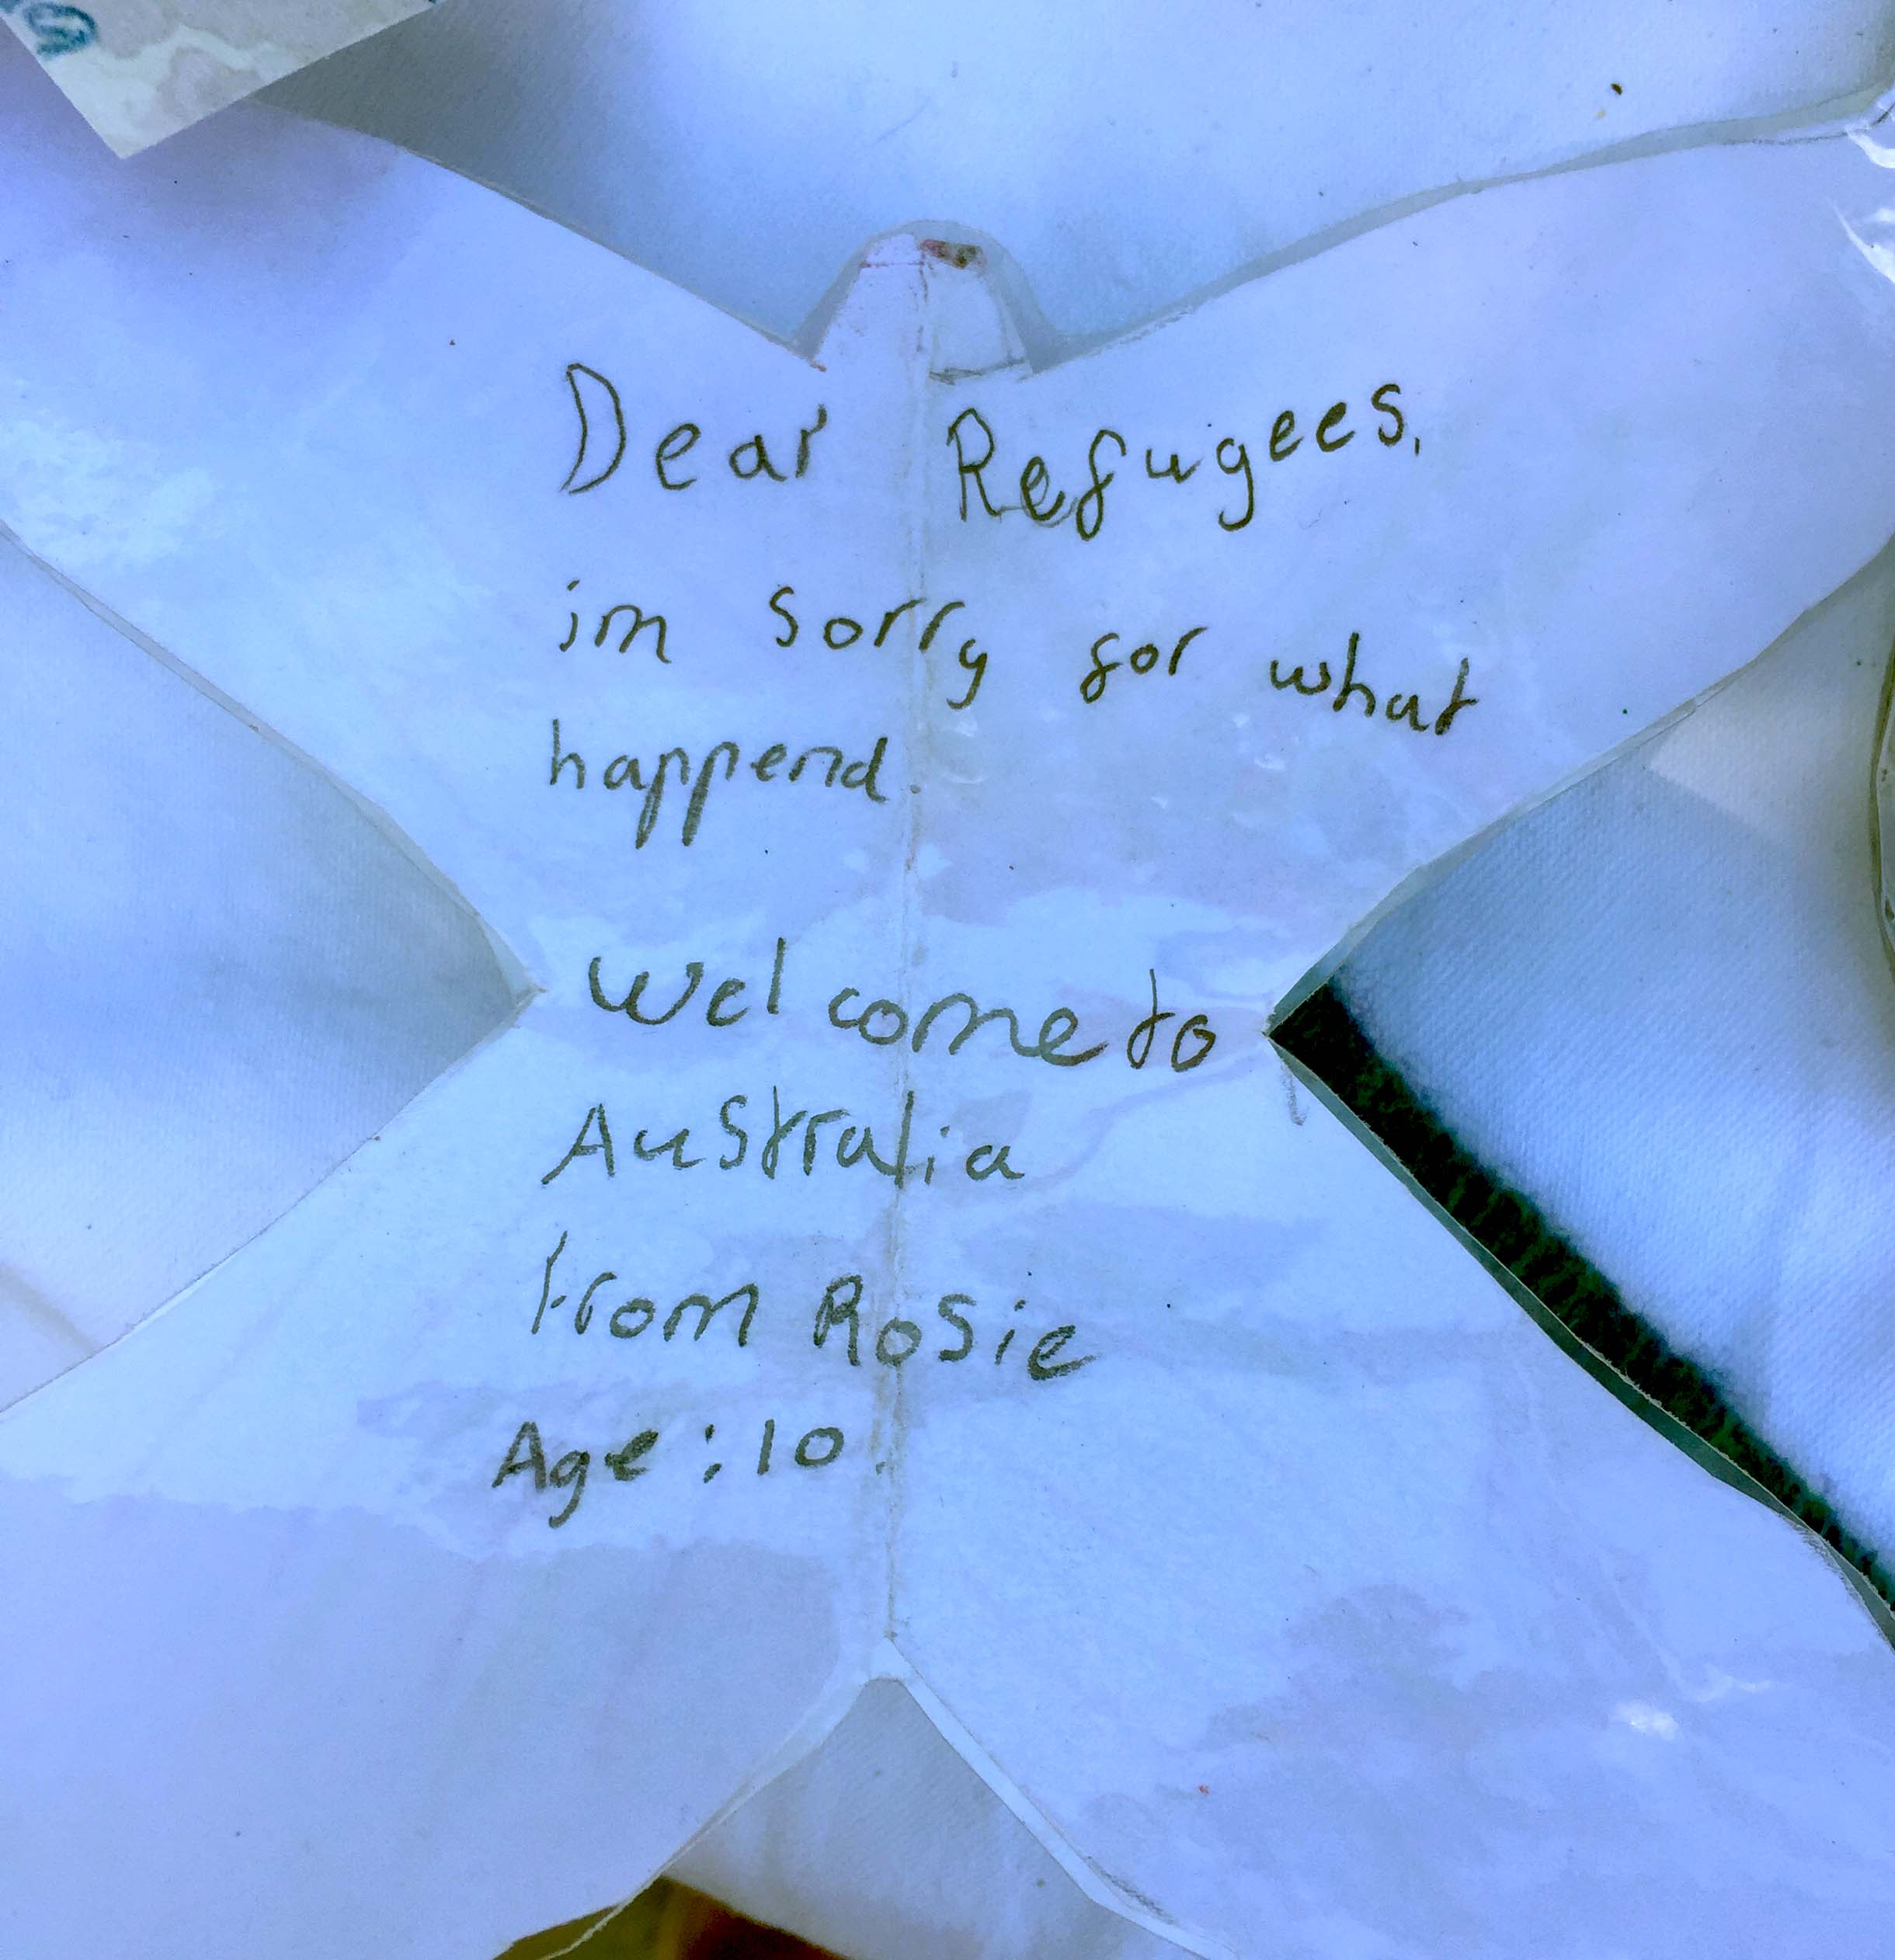 Dear Refugees,
im sorry for what
happend.
Welcome to
Australia
From Rosie
Age: 10.